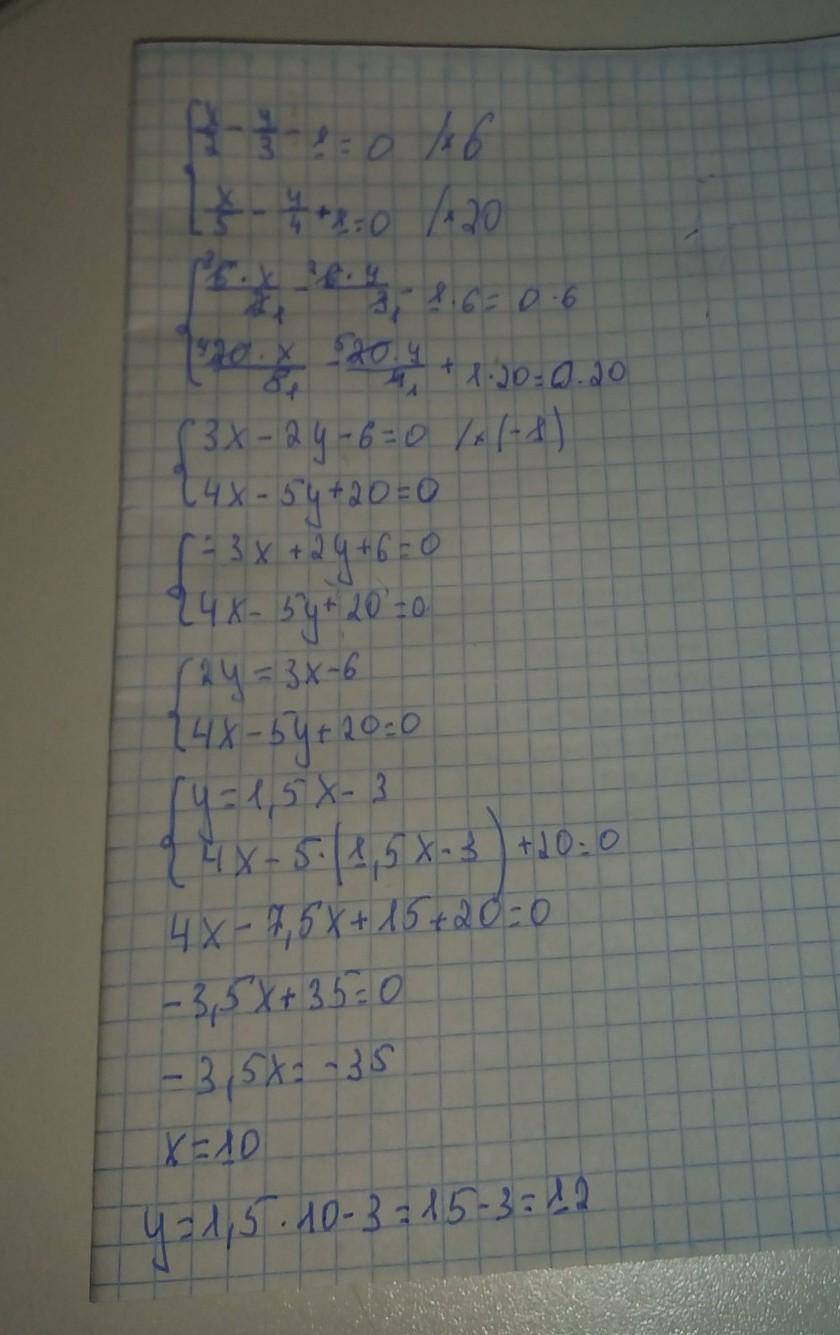 x/2 - y/3 - 1 = 0 /× 6
x/5 - y/4 + 1 = 0 /× 20
³6·x/2₁ - ²6·y/3₁ - 1·6 = 0·6
⁴20·x/5₁ - ⁵20·y/4₁ + 1·20 = 0·20
3x - 2y - 6 = 0 /× (-1)
4x - 5y + 20 = 0
-3x + 2y + 6 = 0
4x - 5y + 20 = 0
2y = 3x - 6
4x - 5y + 20 = 0
y = 1,5x - 3
4x - 5·(1,5x - 3) + 20 = 0
4x - 7,5x + 15 + 20 = 0
-3,5x + 35 = 0
-3,5x = -35
x = 10
y = 1,5·10 - 3 = 15 - 3 = 12